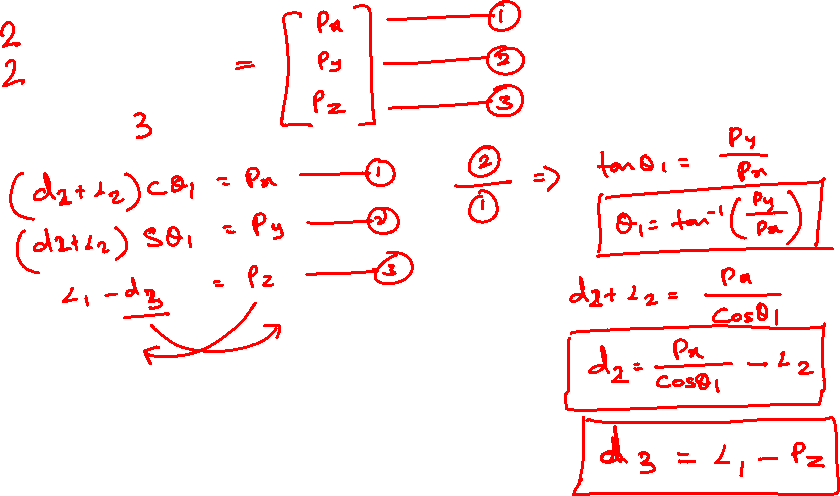 2
2
= [ Px ——— ①
Py ——— ②
Pz ] ——— ③
3
(d2+L2) cθ1 = Px ——— ①
(d2+L2) sθ1 = Py ——— ②
L1 - d3 = Pz ——— ③
②/① => tanθ1 = Py/Px
θ1 = tan⁻¹(Py/Px)
d2+L2 = Px/Cosθ1
d2 = Px/Cosθ1 - L2
d3 = L1 - Pz